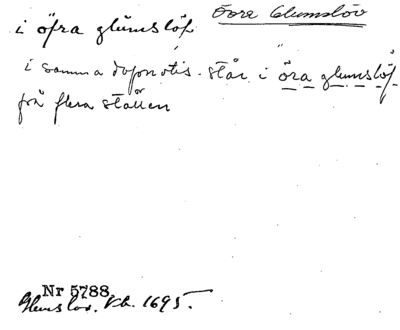 Övre Glumslöv
i öfra glumslöf
i samma dopnotis står i öra glumslöf
på flera ställen
Nr 5788
Glumslöv. Kb. 1695.